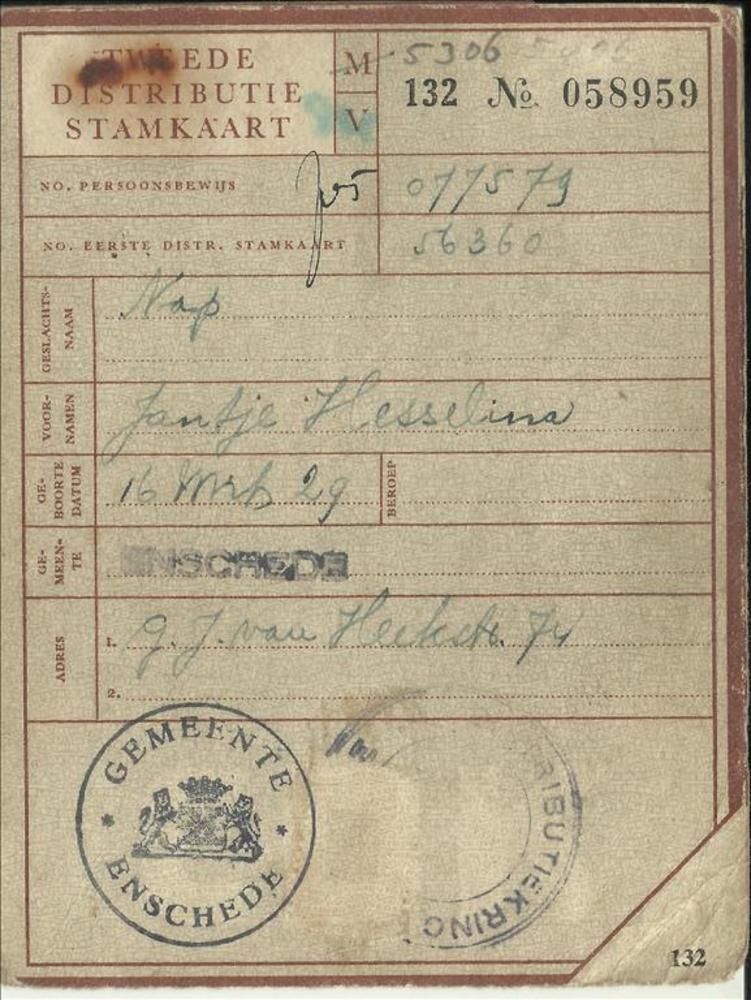 TWEEDE
DISTRIBUTIE
STAMKAART
M
V
5306
132 No. 058959
NO. PERSOONSBEWIJS 077579
NO. EERSTE DISTR. STAMKAART 56360
GESLACHTS-
NAAM
Nap
VOOR-
NAMEN
Jantje Hesselina
GE-
BOORTE
DATUM
16 Mrt 29
BEROEP
GE-
MEEN-
TE
ENSCHEDE
ADRES
1. G. J. van Heekstr. 74
2.
GEMEENTE
ENSCHEDE
RIBUTIEKRING
132